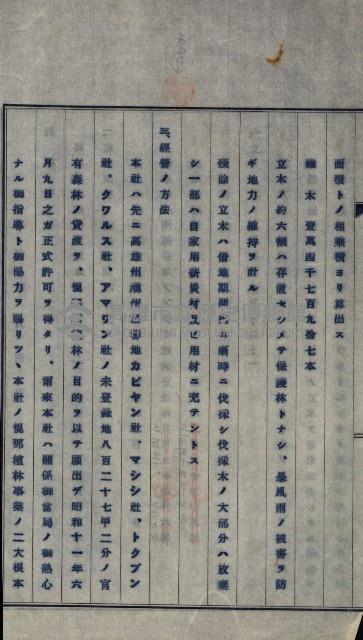 面積トノ相乘積ヨリ算出ス
雜木 壹萬四千七百九拾七本
立木ノ約六割ハ存置セシメテ保護林トナシ、暴風雨ノ被害ヲ防
ギ地力ノ維持ヲ計ル
殘餘ノ立木ハ借地期間內ニ漸時ニ伐採シ伐採木ノ大部分ハ放棄
シ一部ハ自家用薪炭材及ビ用材ニ充テントス
三、經營ノ方法
本社ハ先ニ高雄州潮州郡蕃地カピヤン社、マシシ社、トクブン
社、クワルス社、アマワン社ノ未登錄地八百二十七甲二分ノ官
有森林ノ貸渡ヲ、規那造林ノ目的ヲ以テ願出デ昭和十一年六
月九日之ガ正式許可ヲ得タリ、爾來本社ハ關係御當局ノ御熱心
ナル御指導ト御協力ヲ得リツヽ、本社ノ規那植林事業ノ二大根本